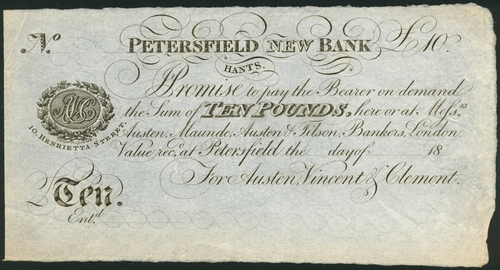 No. PETERSFIELD NEW BANK £10.
HANTS.
I Promise to pay the Bearer on demand
the Sum of TEN POUNDS, here or at Mess.rs
Austen, Maunde, Austen & Tilson, Bankers, London
Value rec.d at Petersfield the day of 18
10. HENRIETTA STREET.
For Austen, Vincent & Clement.
£ Ten.
Ent.d